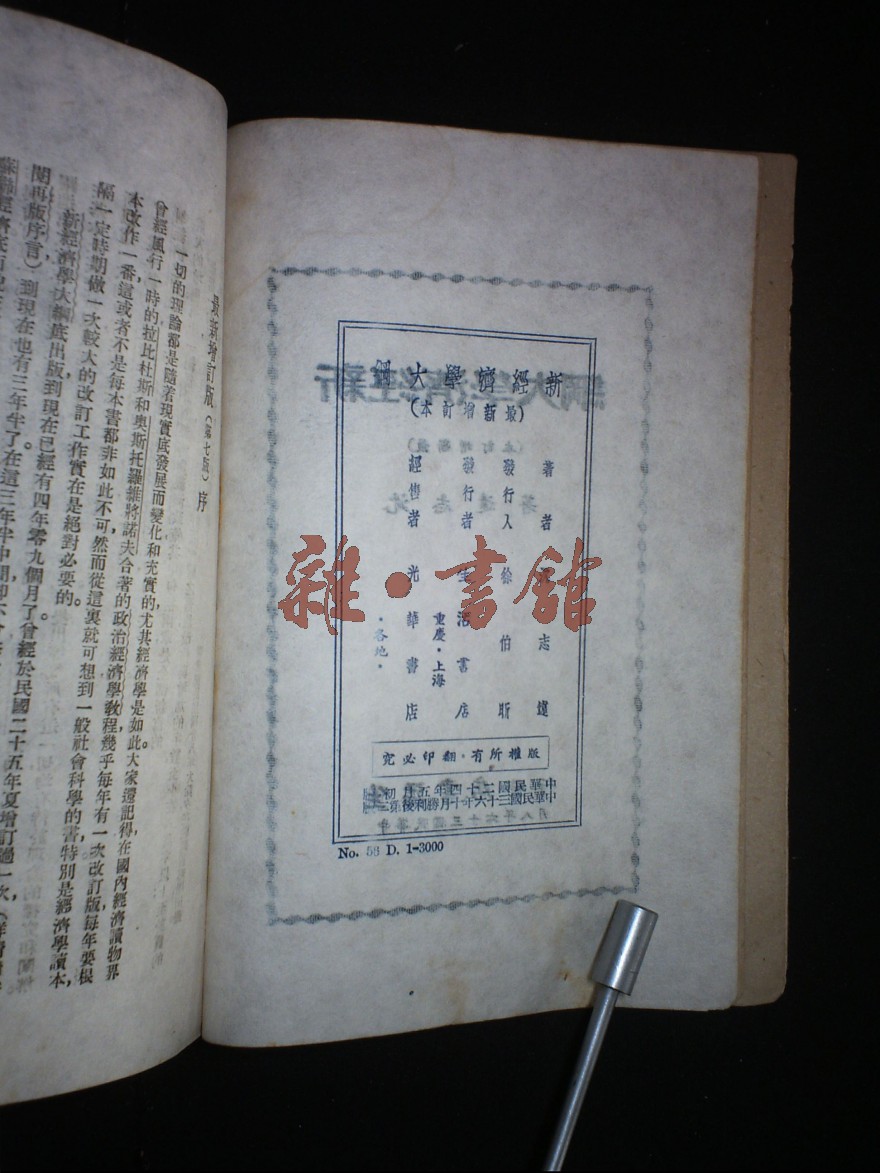 新經濟學大綱
(最新增訂本)
著者 志遠
發行人 徐伯昕
發行者 生活書店
重慶・上海
經售者 光華書店
・各地・
版權所有・翻印必究
中華民國二十四年五月初版
中華民國三十六年十月勝利後第三版
No. 56 D. 1-3000
雜・書館
最新增訂版(第七版)序
一切的理論都是隨着現實底發展而變化和充實的尤其經濟學是如此。大家還記得在國內經濟讀物界
曾經風行一時的拉比杜斯和奧斯托羅維將諾夫合著的政治經濟學教程幾乎每年有一次改訂版每年要根
本改作一番這或者不是每本書都非如此不可然而從這裏就可想到一般社會科學的書特別是經濟學讀本,
隔一定時期做一次較大的改訂工作實在是絕對必要的。
新經濟學大綱底出版到現在已經有四年零九個月了曾經於民國二十五年夏增訂過一次,
閱再版序言)到現在也有三年半了在這三年半中間